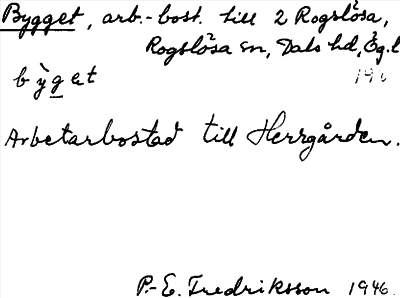 Bygget, arb.-bost. till 2 Rogslösa,
Rogslösa sn, Dals hd, Ög.l
bỳget
Arbetarbostad till Herrgården.
P.-E. Fredriksson 1946.